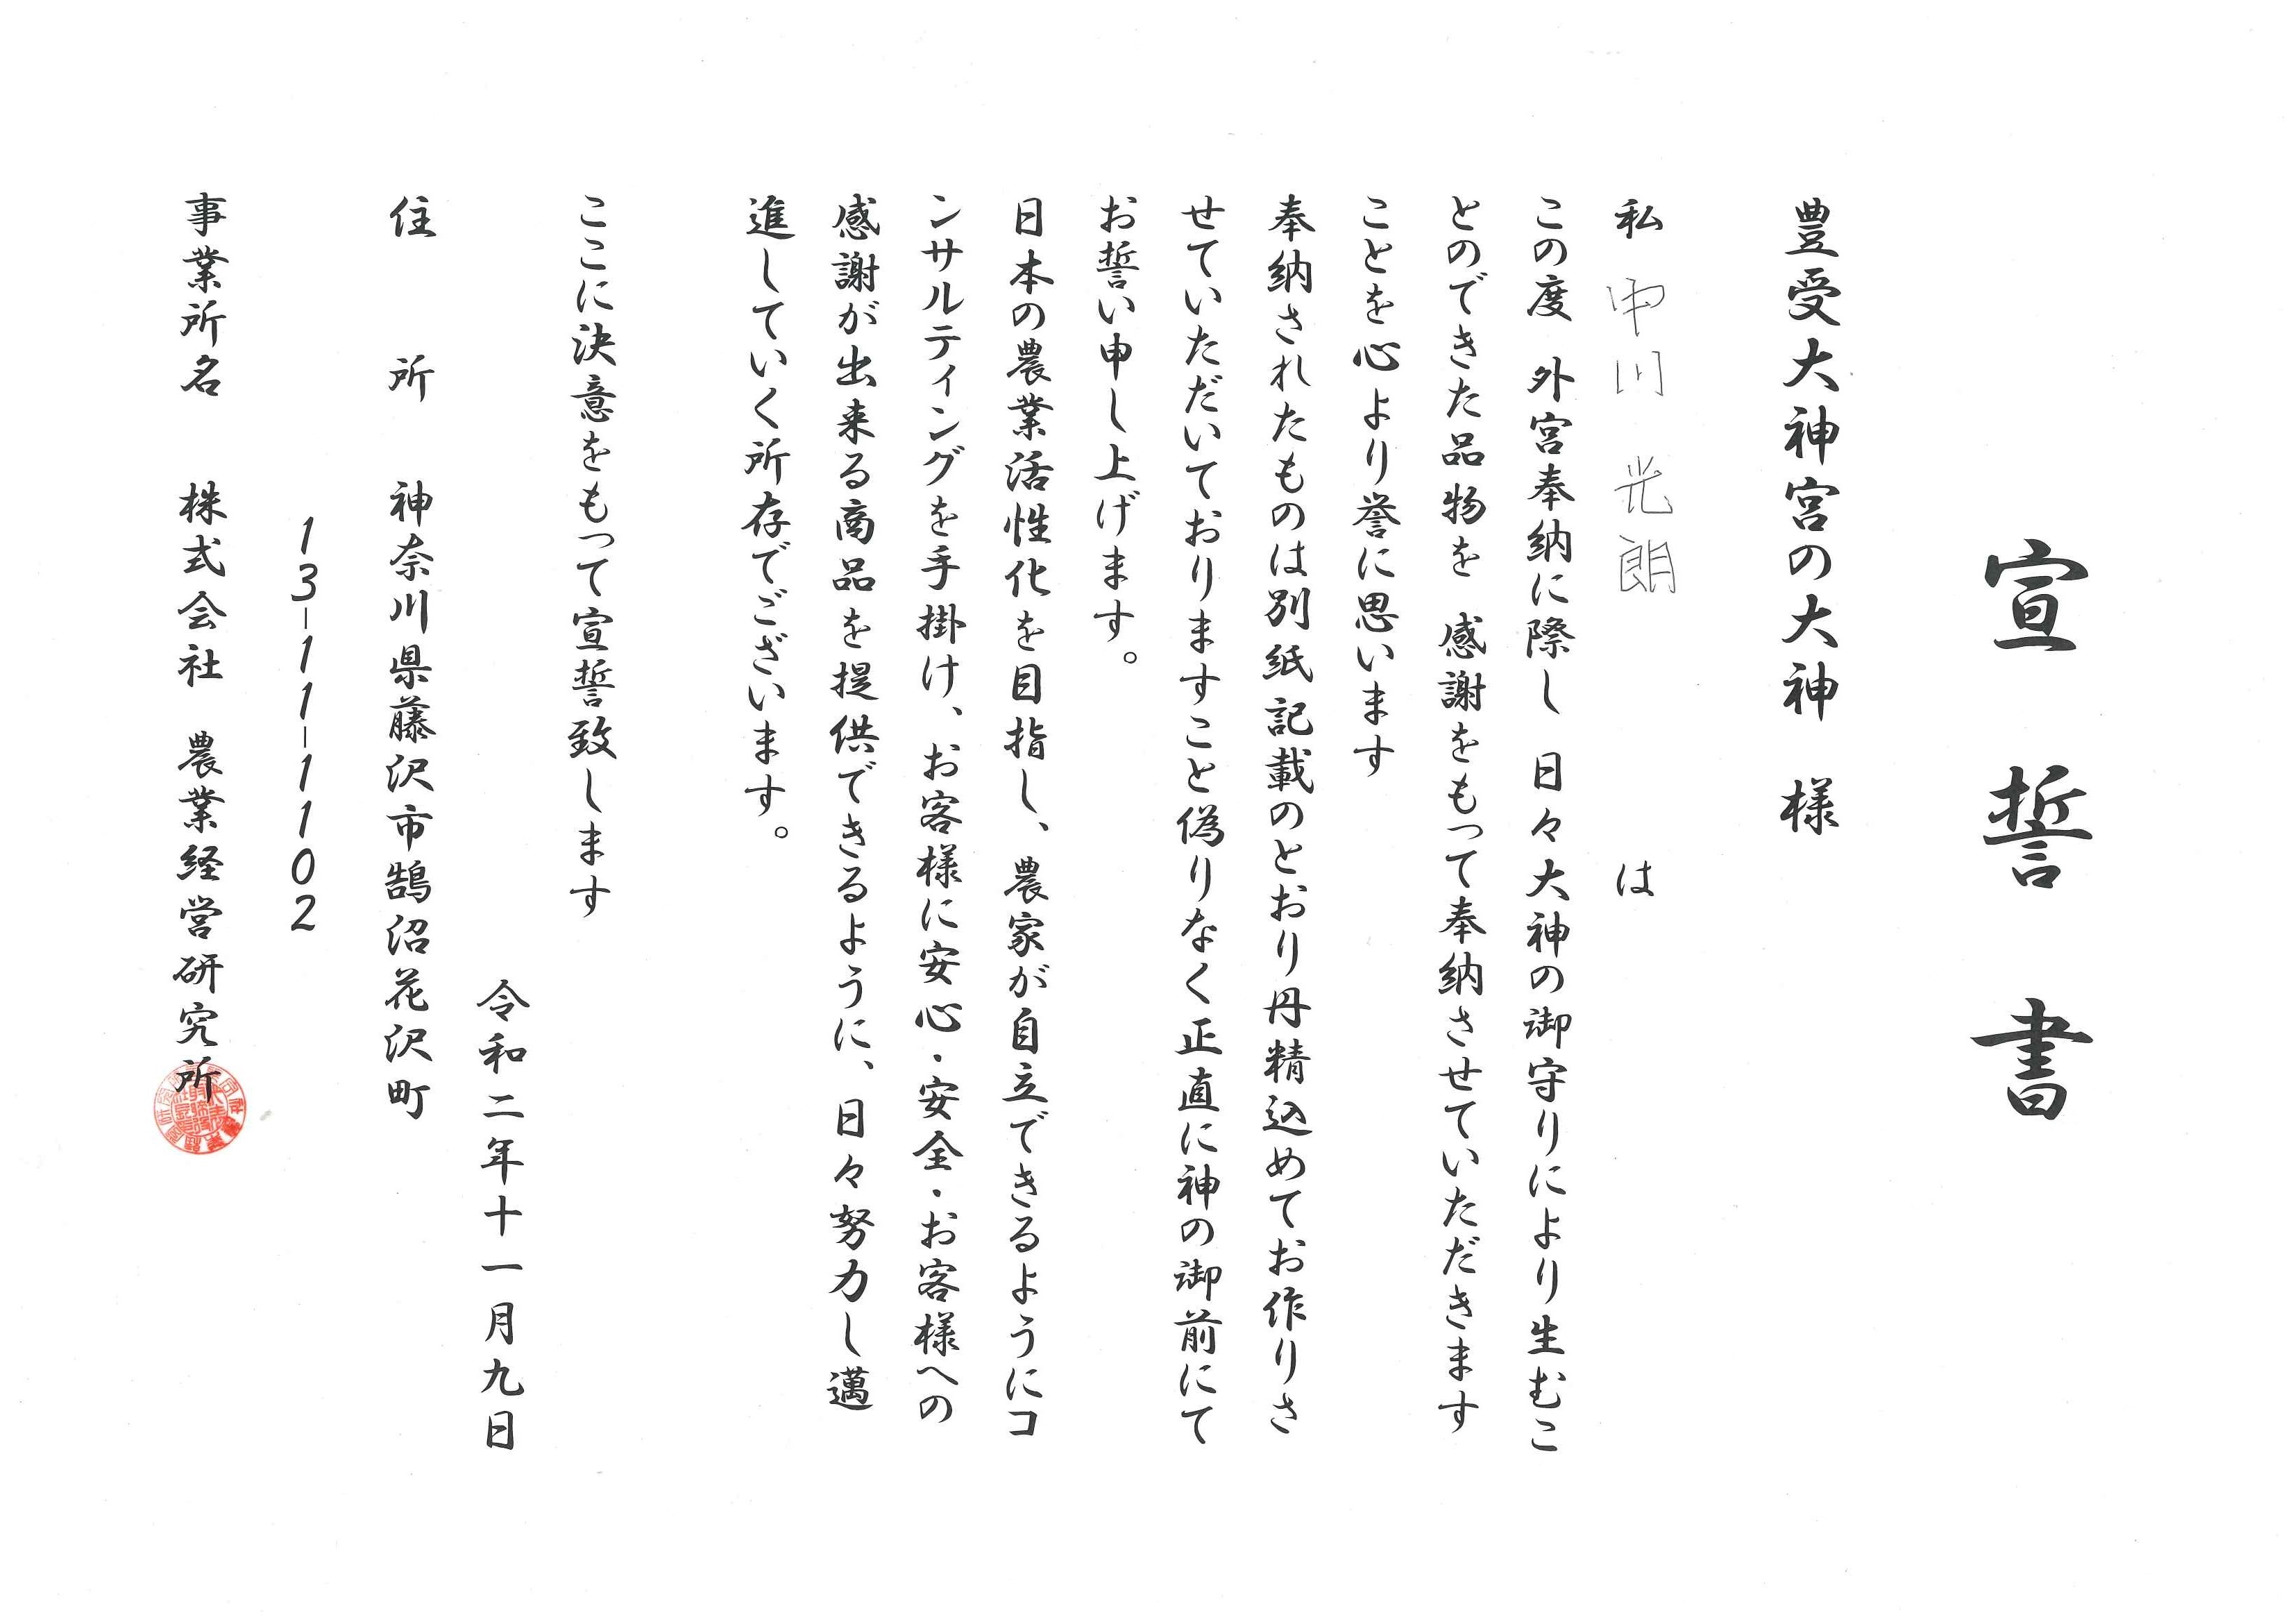 宣誓書
豊受大神宮の大神 様
私 中川 光朗 は
この度 外宮奉納に際し 日々大神の御守りにより生むこ
とのできた品物を 感謝をもって奉納させていただきます
ことを心より誉に思います
奉納されたものは別紙記載のとおり丹精込めてお作りさ
せていただいておりますこと偽りなく正直に神の御前にて
お誓い申し上げます。
日本の農業活性化を目指し、農家が自立できるようにコ
ンサルティングを手掛け、お客様に安心・安全・お客様への
感謝が出来る商品を提供できるように、日々努力し邁
進していく所存でございます。
ここに決意をもって宣誓致します
令和二年十一月九日
住 所 神奈川県藤沢市鵠沼花沢町
13-11-1102
事業所名 株式会社 農業経営研究所